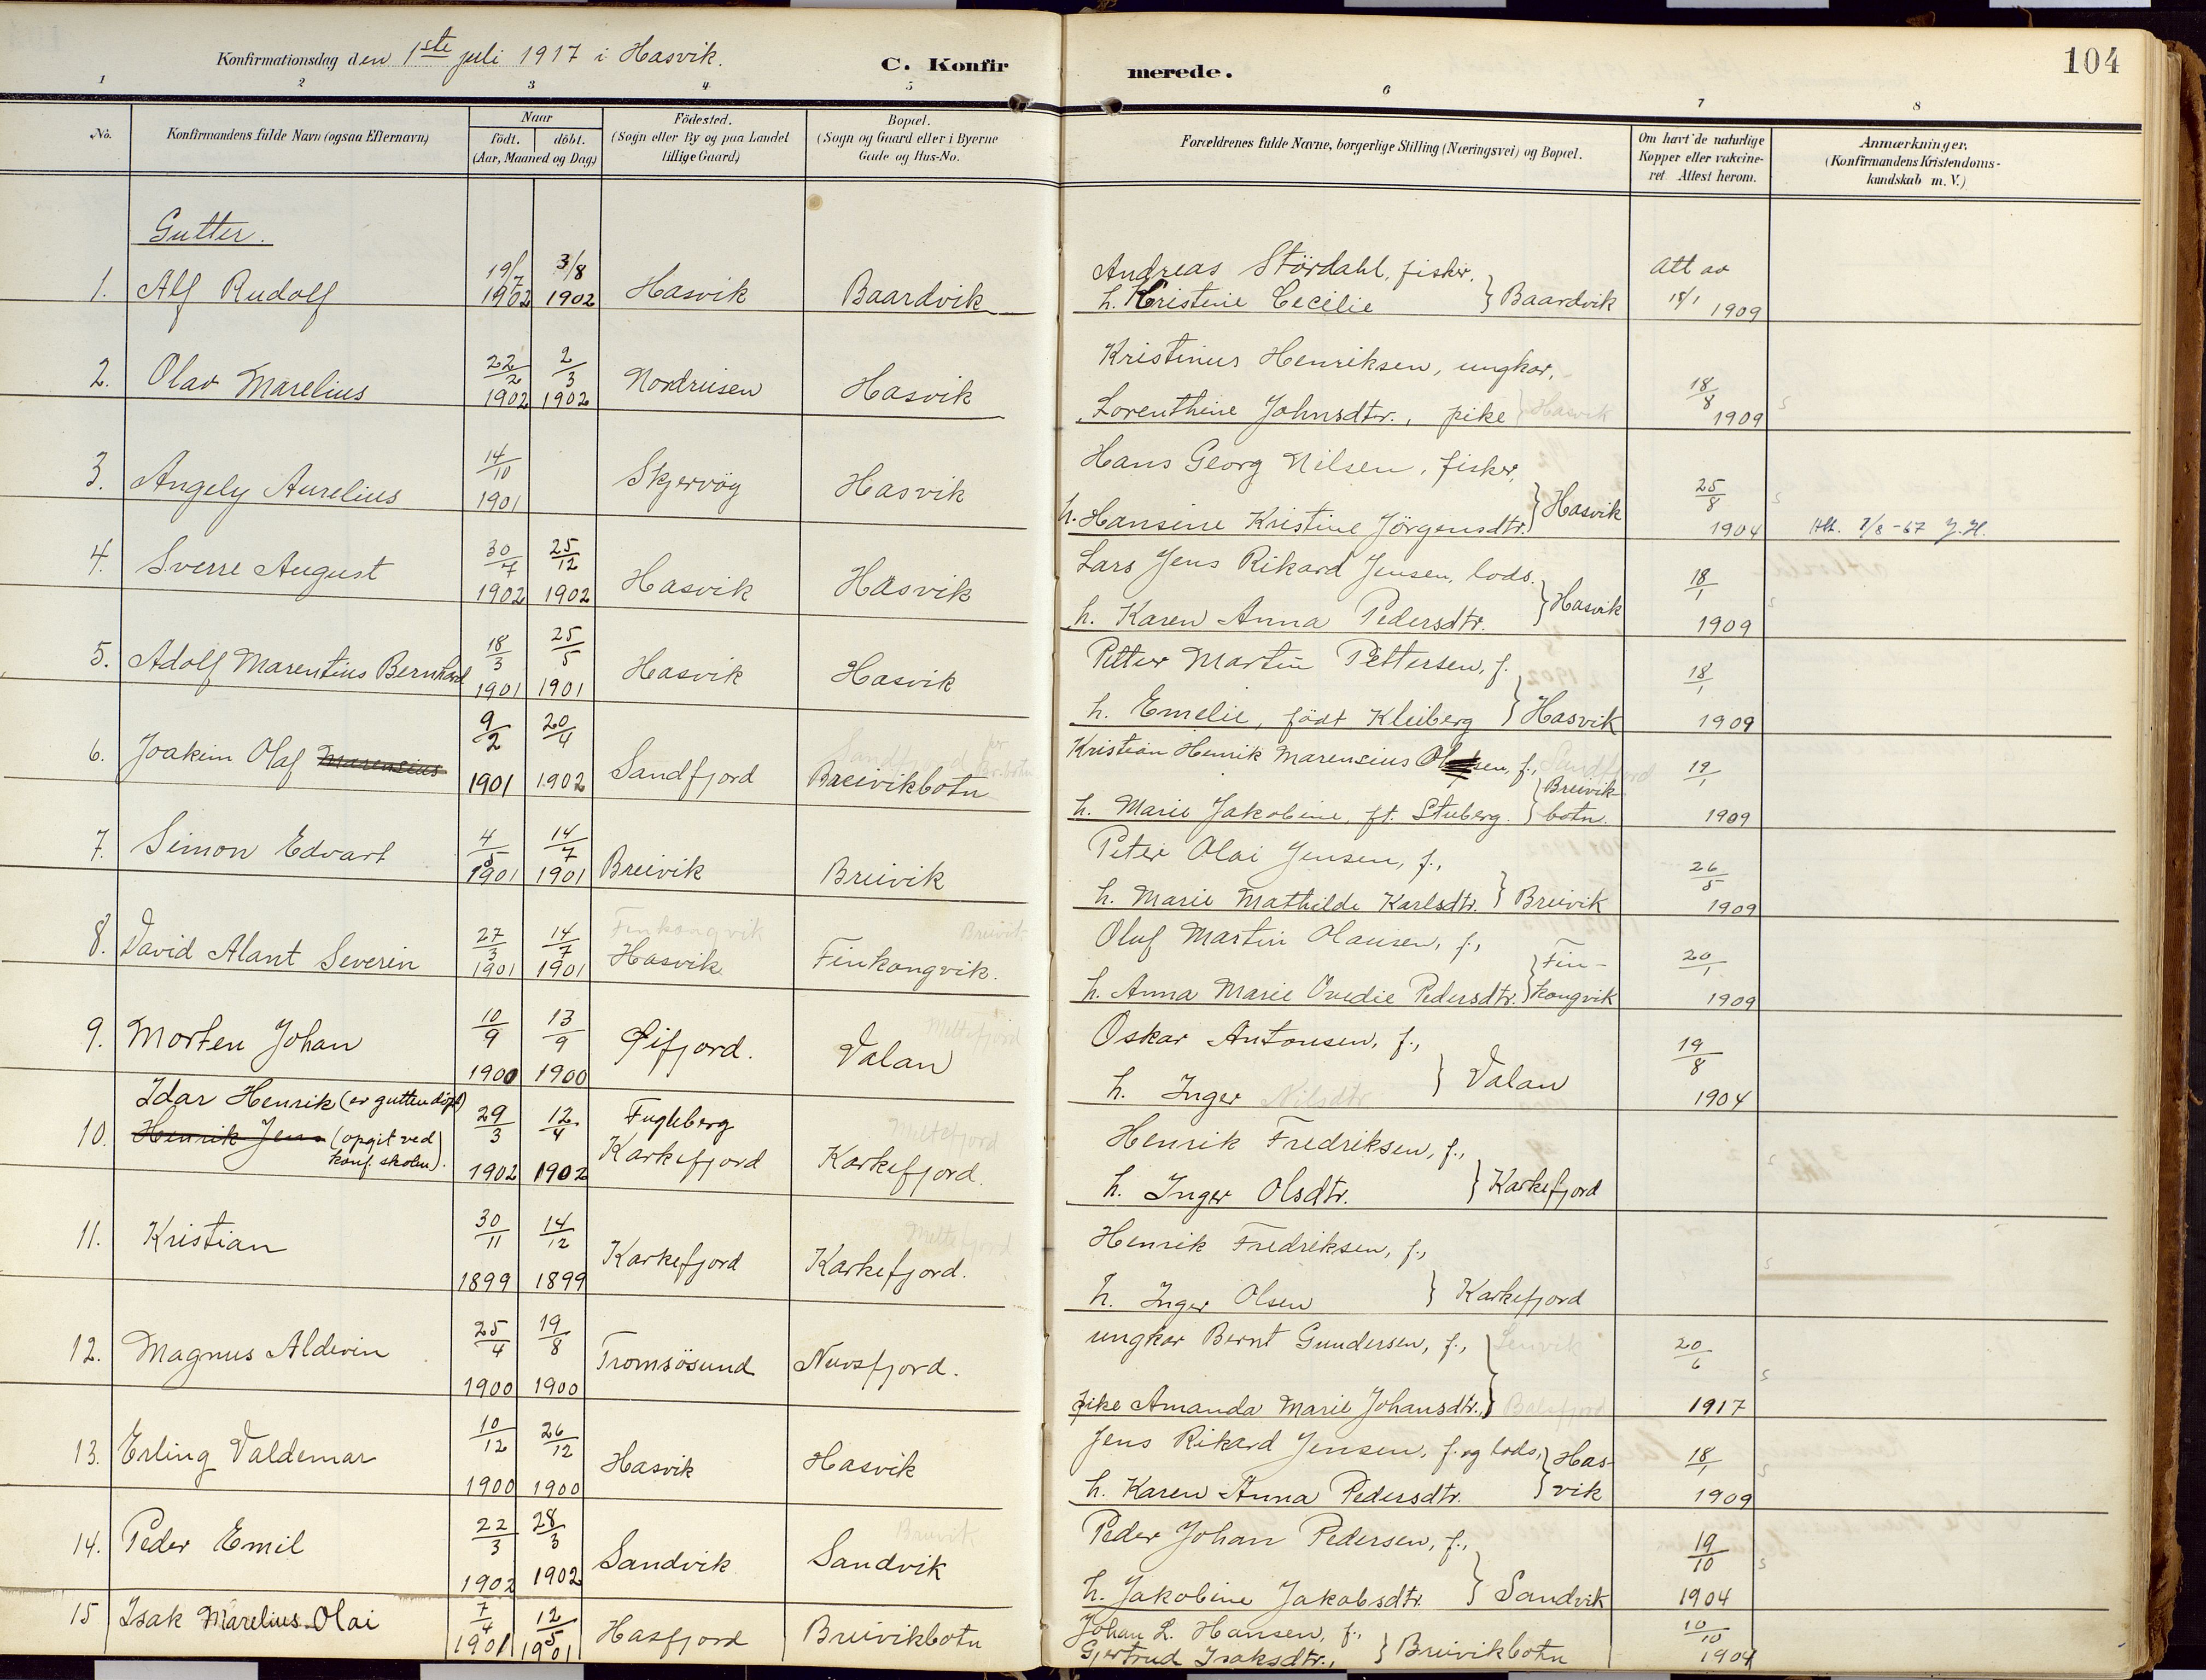 104
Konfirmationsdag den 1ste juli 1917 i Hasvik.
C. Konfirmerede.
1 2 3 4 5 6 7 8
No.
Konfirmandens fulde Navn (ogsaa Efternavn)
Naar
födt. döbt.
(Aar, Maaned og Dag)
Födested.
(Sogn eller By og paa Landet
tillige Gaard)
Bopæl.
(Sogn og Gaard eller i Byerne
Gade og Hus-No.
Forældrenes fulde Navne, borgerlige Stilling (Næringsvei) og Bopæl.
Om havt de naturlige
Kopper eller vakcine-
ret Attest herom.
Anmærkninger.
(Konfirmandens Kristendoms-
kundskab m. V.)
Gutter.
1. Alf Rudolf 19/7 1902 3/8 1902 Hasvik Baardvik
Andreas Stördahl, fisker,
h. Kristine Cecilie } Baardvik
Att av
18/1 1909
2. Olav Marelius 22/2 1902 2/3 1902 Nordreisen Hasvik
Kristinus Henriksen, ungkar,
Lorenthine Johnsdtr., pike } Hasvik
18/8 1909
3. Angely Aurelius 14/10 1901 Skjervöy Hasvik
Hans Georg Nilsen, fisker,
h. Hansine Kristine Jörgensdtr. } Hasvik
25/8 1904
Att. 7/8-67 J.H.
4. Sverre August 30/7 1902 25/12 1902 Hasvik Hasvik
Lars Jens Rikard Jensen, lods.
h. Karen Anna Pedersdtr. } Hasvik
18/1 1909
5. Adolf Marentius Bernhard 18/3 1901 25/5 1901 Hasvik Hasvik
Petter Martin Pettersen, f.
h. Emelie, födt Kleiberg } Hasvik
18/1 1909
6. Joakim Olaf Marensius 9/2 1901 20/4 1902 Sandfjord Breivikbotn
Kristian Henrik Marensius Olsen, f., Sandfjord
h. Marie Jakobine, ft. Stuberg. } Breivik-
botn.
19/1 1909
7. Simon Edvart 4/5 1901 14/7 1901 Breivik Breivik
Peter Olai Jensen, f.,
h. Marie Mathilde Karlsdtr. } Breivik
26/5 1909
8. David Alant Severin 27/3 1901 14/7 1901 Finkongvik
Hasvik Breivik
Finkongvik.
Oluf Martin Olausen, f.,
h. Anna Marie Ovedie Pedersdtr. } Fin-
kongvik
20/1 1909
9. Morten Johan 10/9 1900 13/9 1900 Øifjord. Meltefjord
Valan
Oskar Antonsen, f.,
h. Inger Nilsdtr } Valan
19/8 1904
10. Idar Henrik (er gutten döpt)
Henrik Jens (opgit ved
konf. skolen).
29/3 1902 12/4 1902 Fugleberg
Karkefjord Meltefjord
Karkefjord.
Henrik Fredriksen, f.,
h. Inger Olsdtr. } Karkefjord
11. Kristian 30/11 1899 14/12 1899 Karkefjord Meltefjord
Karkefjord.
Henrik Fredriksen, f.,
h. Inger Olsen } Karkefjord
12. Magnus Aldevin 25/4 1900 19/8 1900 Tromsösund Nuvsfjord.
ungkar Bernt Gundersen, f., } Lenvik
pike Amanda Marie Johansdtr., } Balsfjord
20/6 1917
13. Erling Valdemar 10/12 1900 26/12 1900 Hasvik Hasvik
Jens Rikard Jensen, f. og lods, } Has-
h. Karen Anna Pedersdtr. } vik
18/1 1909
14. Peder Emil 22/3 1902 28/3 1902 Sandvik Breivik
Sandvik
Peder Johan Pedersen, f.,
h. Jakobine Jakobsdtr. } Sandvik
19/10 1904
15 Isak Marelius Olai 7/4 1901 12/5 1901 Hasfjord Breivikbotn
Johan L. Hansen, f.,
Gjertrud Isaksdtr., } Breivikbotn
10/10 1904